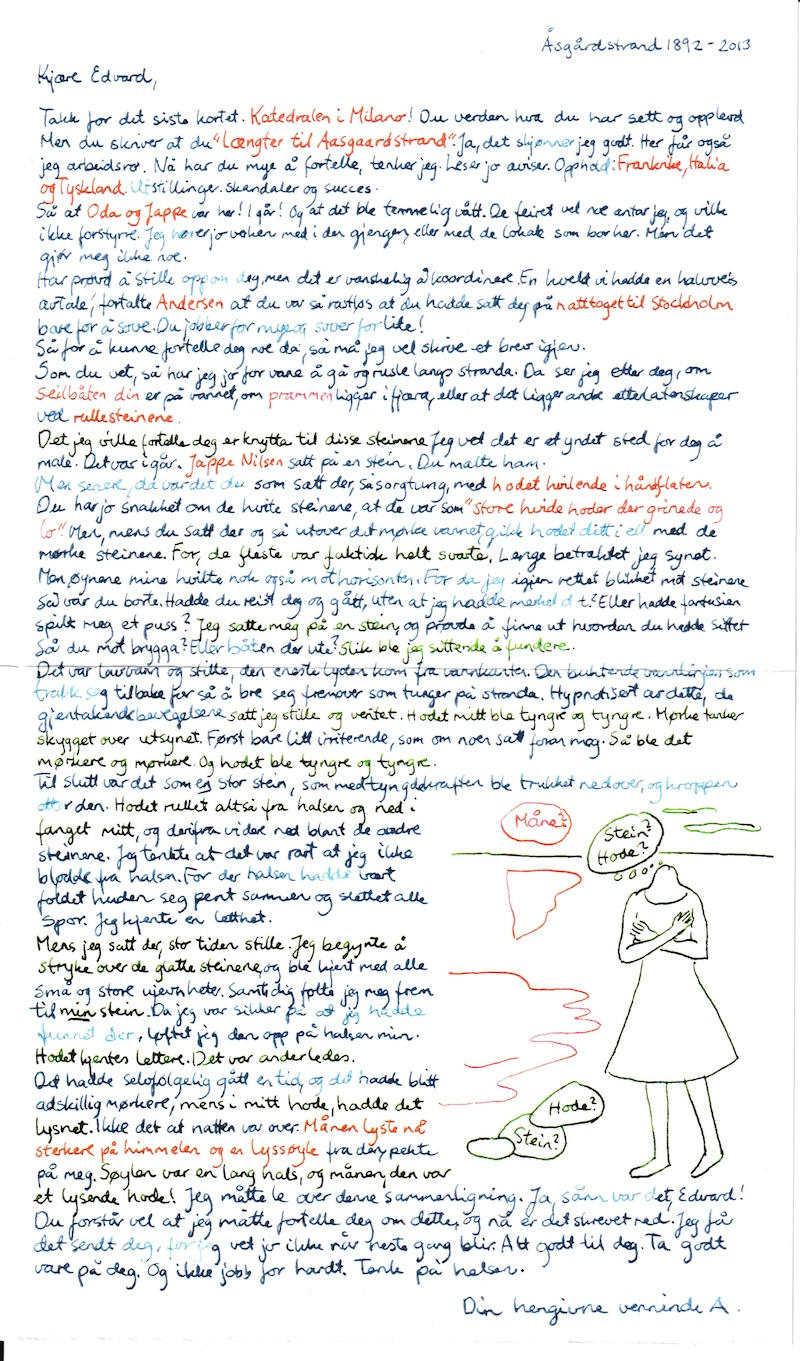 Åsgårdstrand 1892 - 2013
Kjære Edvard,
Takk for det siste kortet. Katedralen i Milano! Du verden hva du har sett og opplevd
Men du skriver at du "Længter til Aasgaardstrand". Ja, det skjønner jeg godt. Her får også
jeg arbeidsro. Nå har du mye å fortelle, tenker jeg. Leser jo aviser. Opphold: Frankrike, Italia
og Tyskland. Utstillinger. skandaler og succes.
Så at Oda og Jappe var her! I går! Og at det ble temmelig vått. De feiret vel noe antar jeg, og ville
ikke forstyrre. Jeg hører jo verken med i den gjengen, eller med de lokale som bor her. Men det
gjør meg ikke noe.
Har prøvd å stille opp om deg, men det er vanskelig å koordinere. En kveld vi hadde en halvveis
avtale, fortalte Andersen at du var så rastløs at du hadde satt deg på nattoget til Stockholm
bare for å sove. Du jobber for mye og sover for lite!
Så for å kunne fortelle deg noe da, så må jeg vel skrive et brev igjen.
Som du vet, så har jeg jo for vane å gå og rusle langs stranda. Da ser jeg etter deg, om
seilbåten din er på vannet, om prammen ligger i fjæra, eller at det ligger andre etterlatenskaper
ved rullesteinene.
Det jeg ville fortelle deg er knytta til disse steinene Jeg vet det er et yndet sted for deg å
male. Det var i går. Jappe Nilsen satt på en stein. Du malte ham.
Men senere, da var det du som satt der, så sorgtung, med hodet hvilende i håndflaten.
Du har jo snakket om de hvite steinene, at de var som "store hvide hoder der grinede og
lo". Men, mens du satt der og så utover det mørke vannet, gikk hodet ditt i ett med de
mørke steinene. For, de fleste var faktisk helt svarte. Lenge betraktet jeg synet.
Men, øynene mine hvilte nok også mot horisonten. For da jeg igjen rettet blikket mot steinene
så var du borte. Hadde du reist deg og gått, uten at jeg hadde merket d t? Eller hadde fantasien
spilt meg et puss? Jeg satte meg på en stein, og prøvde å finne ut hvordan du hadde sittet
Så du mot brygga? Eller båten der ute? Slik ble jeg sittende å fundere.
Det var lavvann og stille, den eneste lyden kom fra vannkanten. Den buktende vannlinjen som
trakk seg tilbake for så å bre seg fremover som tunger på stranda. Hypnotisert av dette, de
gjentakende bevegelsene satt jeg stille og ventet. Hodet mitt ble tyngre og tyngre. Mørke tanker
skygget over utsynet. Først bare litt irriterende, som om noen satt foran meg. Så ble det
mørkere og mørkere. Og hodet ble tyngre og tyngre.
Til slutt var det som en stor stein, som med tyngdekraften ble trukket nedover, og kroppen
etter den. Hodet rullet altså fra halsen og ned i
fanget mitt, og derifra videre ned blant de andre
steinene. Jeg tenkte at det var rart at jeg ikke
blødde fra halsen. For der halsen hadde vært
foldet huden seg pent sammen og slettet alle
spor. Jeg kjente en letthet.
Mens jeg satt der, sto tiden stille. Jeg begynte å
stryke over de glatte steinene, og ble kjent med alle
små og store ujevnheter. Samtidig følte jeg meg frem
til min stein. Da jeg var sikker på at jeg hadde
funnet den, løftet jeg den opp på halsen min.
Hodet kjentes lettere. Det var anderledes.
Det hadde selvfølgelig gått en tid, og det hadde blitt
adskillig mørkere, mens i mitt hode, hadde det
lysnet. Ikke det at natten var over. Månen lyste nå
sterkere på himmelen og en lyssøyle fra den pekte
på meg. Søylen var en lang hals, og månen, den var
et lysende hode! Jeg måtte le over denne sammenligning. Ja, sånn var det, Edvard!
Du forstår vel at jeg måtte fortelle deg om dette, og nå er det skrevet ned. Jeg få
det sendt deg, for jeg vet jo ikke når neste gang blir. Alt godt til deg. Ta godt
vare på deg. Og ikke jobb for hardt. Tenk på helsen.
Din hengivne venninde A.
Måne?
Stein?
Hode?
Hode?
Stein?